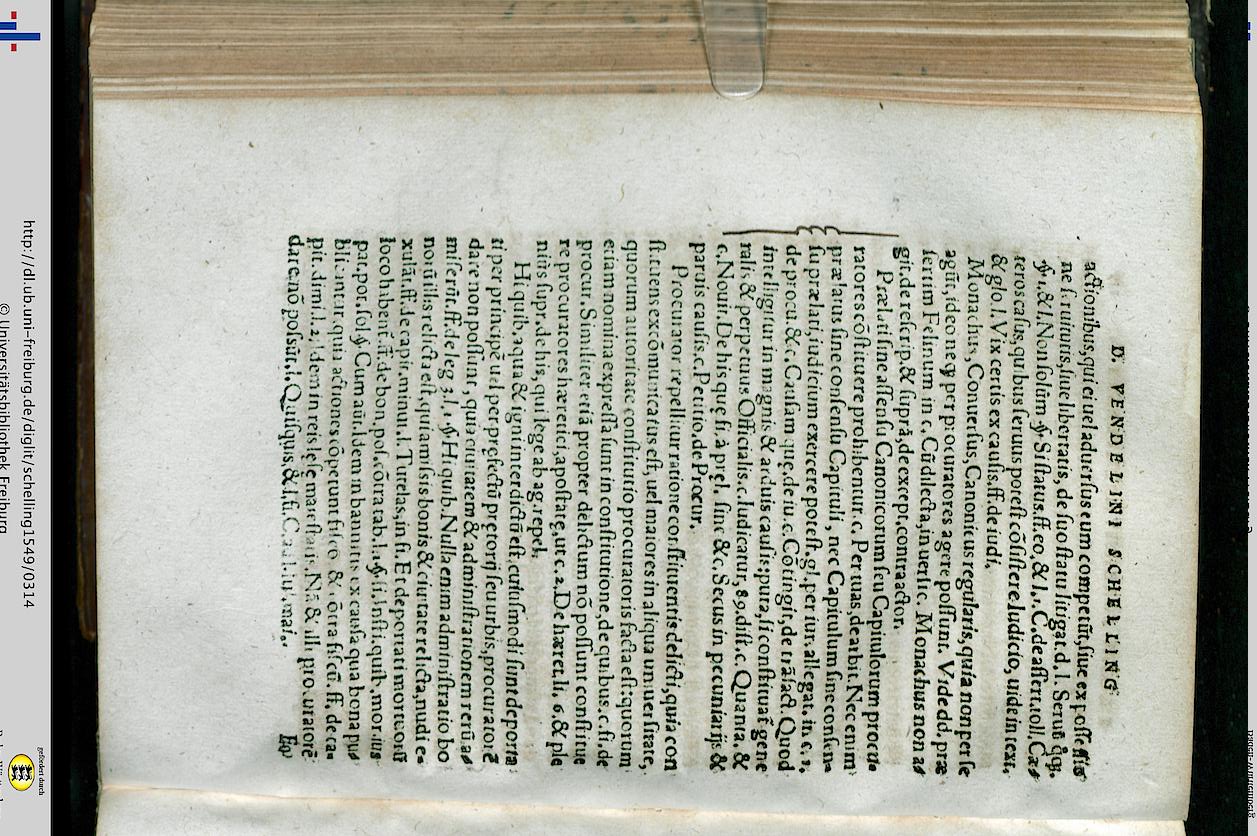 D. VENDELINI SCHELLING
actionibus, quæ ei uel aduersus eum competũt, siue ex possessio
ne seruitutis, siue libertatis, de suo statu litigat. d. l. Seruũ qq.
§. 1. & l. Non solùm §. Si status. ff. eo, & l. 1. C. de assert. toll. Cæ⸗
teros casus, quibus seruus potest cõsistere Iudicio, uide in text.
& glo. l. Vix certis ex causis. ff. de iudi.
Monachus, Conuersus, Canonicus regularis, quia non per se
agũt, ideo neque per procuratores agere possunt. Vide dd. præ
sertim Felinum in c. Cũ dilecta, in uersic. Monachus non a⸗
git, de rescrip. & suprà, de except. contra actor.
Prælati sine assensu Canonicorum seu Capitulorum procu⸗
ratores cõstituere prohibentur. c. Per tuas, de arbit. Nec enim
prælatus sine consensu Capituli, nec Capitulum sine consen⸗
su prælati, iudicium exercere potest. gl. per iur. allegat. in c. 1.
de procu. & c. Causam quę, de iu. c. Cõtingit, de trãsact. Quod
intelligitur in magnis & arduis causis: puta, si constituat gene
ralis & perpetuus Officialis. c. Iudicatur, 89. dist. c. Quanta, &
c. Nouit. De his quę fi. à pręl. sine &c. Secus in pecuniarijs &
paruis causis. c. Petitio, de Procur.
Procurator repellitur ratione constituentis delicti, quia con
stituens excõmunicatus est, uel maiores in aliqua uniuersitate,
quorum autoritate constitutio procuratoris facta est: quorum
etiam nomina expressa sunt in constitutione, de quibus. c. fi. de
procur. Similiter etiã propter delictum nõ possunt constitue
re procuratores hæretici, apostatę, ut c. 2. De hæret. li. 6. & ple
niùs supr. de his, qui lege ab ag. repel.
Hi quib. aqua & igni interdictũ est, cuiusmodi sunt deporta
ti per principẽ uel per prefectũ prętorij seu urbis, procuratorẽ
dare non possunt, quia ciuitatem & administrationem rerũ a⸗
miserũt. ff. de leg. 3. l. 1. § Hi quib. Nulla enim administratio bo
norũ illis relicta est, quia missis bonis & ciuitate relicta, nudi e⸗
xulãt. ff. de capit. minut. l. Tutelas, in fi. Et deportati mortuorũ
loco habent. ff. de bon. pol. cõtra tab. l. 1. § si. Insti. quib. mo. ius
pat. pot. sol. § Cum aũt. Idem in bannitis ex causa qua bona pu⸗
blicantur, quia actiones cõpetunt fisco, & cõtra fiscũ. ff. de ca⸗
pit. dimi. l. 2. Idem in reis lęsę maiestatis. Nã & illi procuratorẽ
dare nõ possũt. l. Quisquis, & l. fi. C. ad l. iul. mai.
Epi
http://dl.ub.uni-freiburg.de/diglit/schelling1549/0314
© Universitätsbibliothek Freiburg
gefördert durch